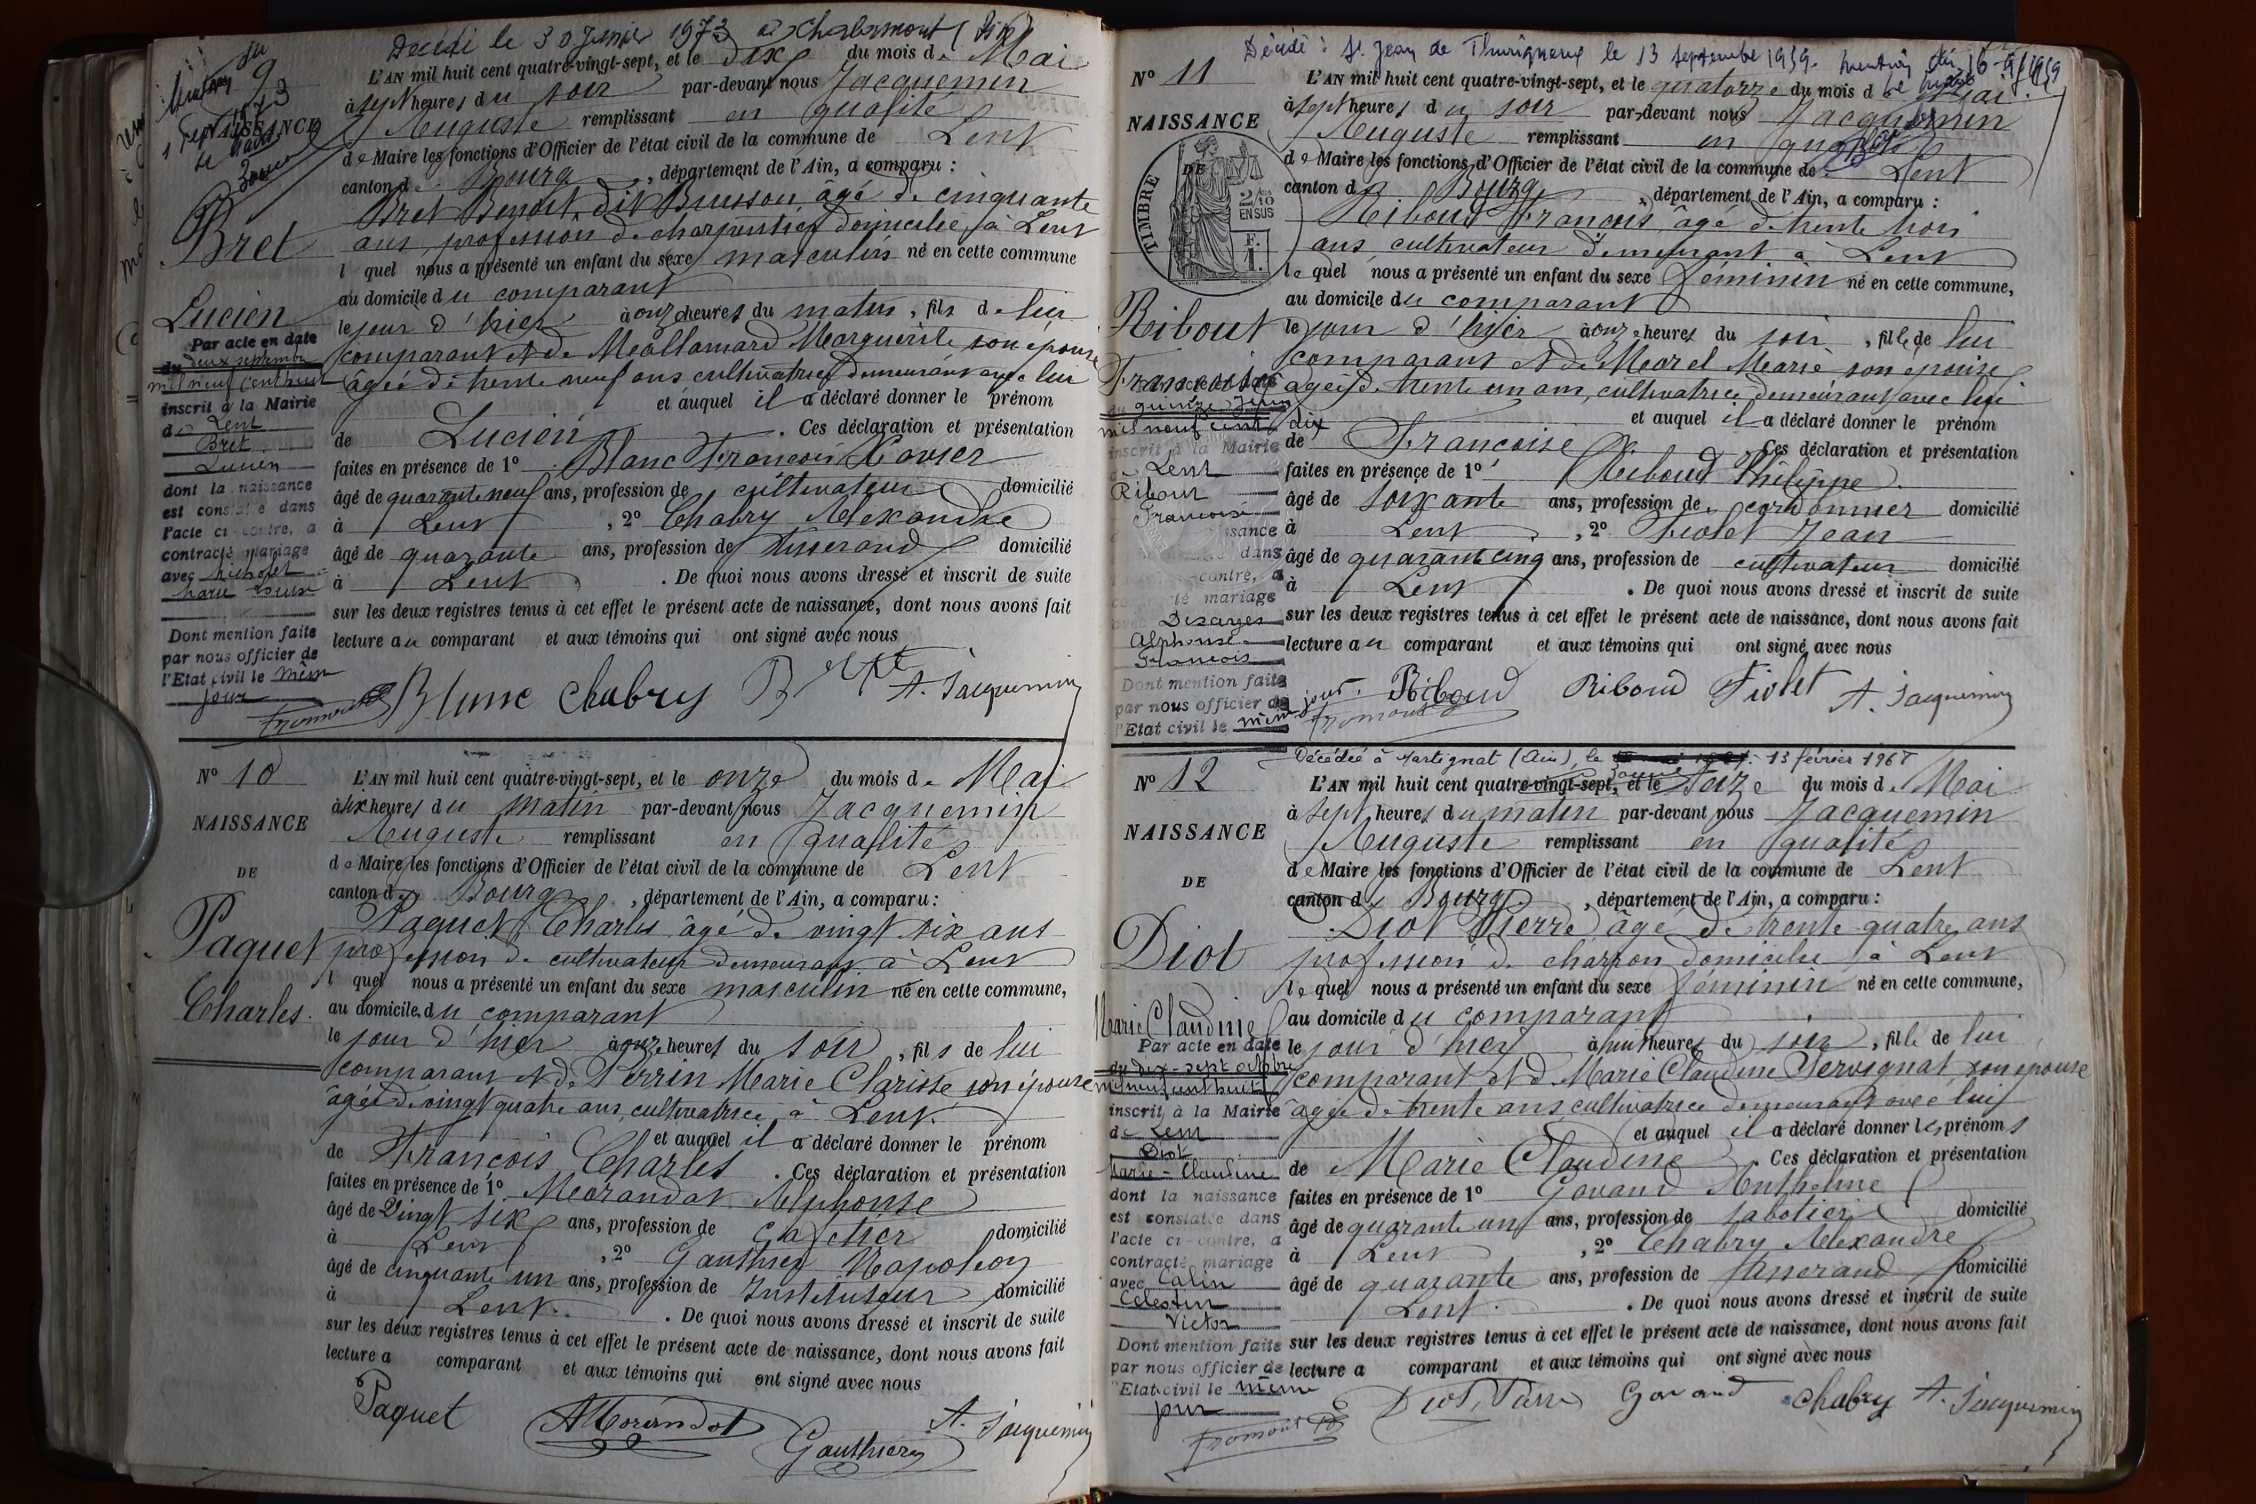 Décédé le 30 Janvier 1973 à Chalamont (Ain)
9
NAISSANCE
L'AN mil huit cent quatre-vingt-sept, et le dix du mois de Mai
à sept heures du soir par-devant nous Jacquemin
Auguste remplissant en qualité
de Maire les fonctions d'Officier de l'état civil de la commune de Lent
canton de Bourg, département de l'Ain, a comparu :
Bret Benoit, dit Buisson, âgé de cinquante
ans, profession de charpentier domicilié à Lent
l quel nous a présenté un enfant du sexe masculin né en cette commune
au domicile du comparant
le jour d'hier à onze heures du matin, fils de lui
comparant et de Meallamard Marguerite son épouse
âgée de trente neuf ans cultivatrice demeurant avec lui
et auquel il a déclaré donner le prénom
de Lucien. Ces déclaration et présentation
faites en présence de 1° Blanc François Xavier
âgé de quarante neuf ans, profession de cultivateur domicilié
à Lent, 2° Chabry Alexandre
âgé de quarante ans, profession de tisserand domicilié
à Lent. De quoi nous avons dressé et inscrit de suite
sur les deux registres tenus à cet effet le présent acte de naissance, dont nous avons fait
lecture au comparant et aux témoins qui ont signé avec nous
Blanc Chabry Bret A. Jacquemin
Bret
Lucien
Par acte en date
du deux septembre
mil neuf cent huit
inscrit à la Mairie
de Lent
Bret
Lucien
dont la naissance
est constatée dans
l'acte ci-contre, a
contracté mariage
avec
Marie
Dont mention faite
par nous officier de
l'Etat civil le même
jour
Fromont
N° 10
NAISSANCE
DE
Paquet
Charles
L'AN mil huit cent quatre-vingt-sept, et le onze du mois de Mai
à six heures du matin par-devant nous Jacquemin
Auguste remplissant en qualité
de Maire les fonctions d'Officier de l'état civil de la commune de Lent
canton de Bourg, département de l'Ain, a comparu :
Paquet Charles âgé de vingt six ans
profession de cultivateur demeurant à Lent
l quel nous a présenté un enfant du sexe masculin né en cette commune,
au domicile du comparant
le jour d'hier à onze heures du soir, fils de lui
comparant et de Perrin Marie Clarisse son épouse
âgée de vingt quatre ans, cultivatrice à Lent.
et auquel il a déclaré donner le prénom
de François Charles. Ces déclaration et présentation
faites en présence de 1° Morandat Alphonse
âgé de Vingt six ans, profession de Cafetier domicilié
à Lent, 2° Gauthier Napoléon
âgé de cinquante un ans, profession de Instituteur domicilié
à Lent. De quoi nous avons dressé et inscrit de suite
sur les deux registres tenus à cet effet le présent acte de naissance, dont nous avons fait
lecture a comparant et aux témoins qui ont signé avec nous
Paquet AMorandat Gauthier A. Jacquemin
Décédée : St Jean de Thurigneux le 13 septembre 1959. Mention du 16-9-1959
Le Maire
N° 11
NAISSANCE
DE
TIMBRE
2/10
EN SUS
F.
1.
L'AN mil huit cent quatre-vingt-sept, et le quatorze du mois de Mai
à sept heures du soir par-devant nous Jacquemin
Auguste remplissant en qualité
de Maire les fonctions d'Officier de l'état civil de la commune de Lent
canton de Bourg, département de l'Ain, a comparu :
Riboud François âgé de trente trois
ans cultivateur demeurant à Lent
le quel nous a présenté un enfant du sexe féminin né en cette commune,
au domicile du comparant
le jour d'hier à onze heures du soir, fille de lui
comparant et de Morel Marie son épouse
âgée de trente un ans, cultivatrice, demeurant avec lui
et auquel il a déclaré donner le prénom
de Francoise Ces déclaration et présentation
faites en présence de 1° Riboud Philippe
âgé de soixante ans, profession de cordonnier domicilié
à Lent, 2° Fiolet Jean
âgé de quarante cinq ans, profession de cultivateur domicilié
à Lent. De quoi nous avons dressé et inscrit de suite
sur les deux registres tenus à cet effet le présent acte de naissance, dont nous avons fait
lecture au comparant et aux témoins qui ont signé avec nous
Riboud Riboud Fiolet A. Jacquemin
Ribout
Francoise
du quinze Juin
mil neuf cent dix
inscrit à la Mairie
Lent
Ribout
Francoise
contre, a
mariage
Desarges
Alphonse
Francois
Dont mention faite
par nous officier de
l'Etat civil le même jour.
Fromont
Décédée à Martignat (Ain), le 13 février 1967
N° 12
NAISSANCE
DE
Diot
Marie Claudine
L'AN mil huit cent quatre-vingt-sept, et le seize du mois de Mai
à sept heures du matin par-devant nous Jacquemin
Auguste remplissant en qualité
de Maire les fonctions d'Officier de l'état civil de la commune de Lent
canton de Bourg, département de l'Ain, a comparu :
Diot Pierre âgé de trente quatre ans
profession de charron domicilié à Lent
le quel nous a présenté un enfant du sexe féminin né en cette commune,
au domicile du comparant
le jour d'hier à huit heures du soir, fille de lui
comparant et de Marie Claudine Servignat son épouse
âgée de trente ans cultivatrice demeurant avec lui
et auquel il a déclaré donner les prénoms
de Marie Claudine Ces déclaration et présentation
faites en présence de 1° Gavand Anthelme
âgé de quarante un ans, profession de sabotier domicilié
à Lent, 2° Chabry Alexandre
âgé de quarante ans, profession de tisserand domicilié
Lent. De quoi nous avons dressé et inscrit de suite
sur les deux registres tenus à cet effet le présent acte de naissance, dont nous avons fait
lecture a comparant et aux témoins qui ont signé avec nous
Diot Pierre Gavand Chabry A. Jacquemin
Par acte en date
du dix-sept octobre
mil neuf cent huit
inscrit à la Mairie
de Lent
Diot
Marie-Claudine
dont la naissance
est constatée dans
l'acte ci-contre, a
contracté mariage
avec Calin
Célestin
Victor
Dont mention faite
par nous officier de
l'Etat civil le même
jour
Fromont